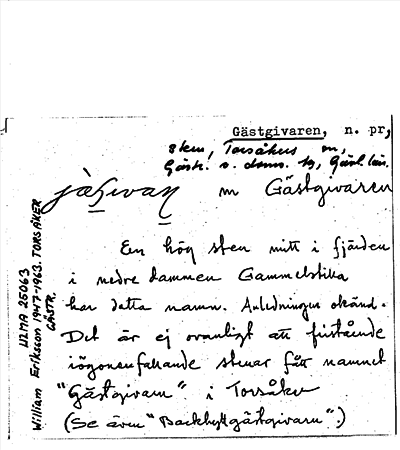 Gästgivaren, n. pr,
sten, Torsåkers sn,
Gästr. s. doms. hg, Gävl. län.
jäsivaɳ m Gästgivaren
En hög sten mitt i fjärden
i nedre dammen Gammelstilla
har detta namn. Anledningen okänd.
Det är ej ovanligt att fristående
iögonenfallande stenar fått namnet
"Gästgivarn" i Torsåker
(Se även "Backhyttgästgivarn".)
ULMA 25063
William Eriksson 1947-1963. TORSÅKER
GÄSTR.